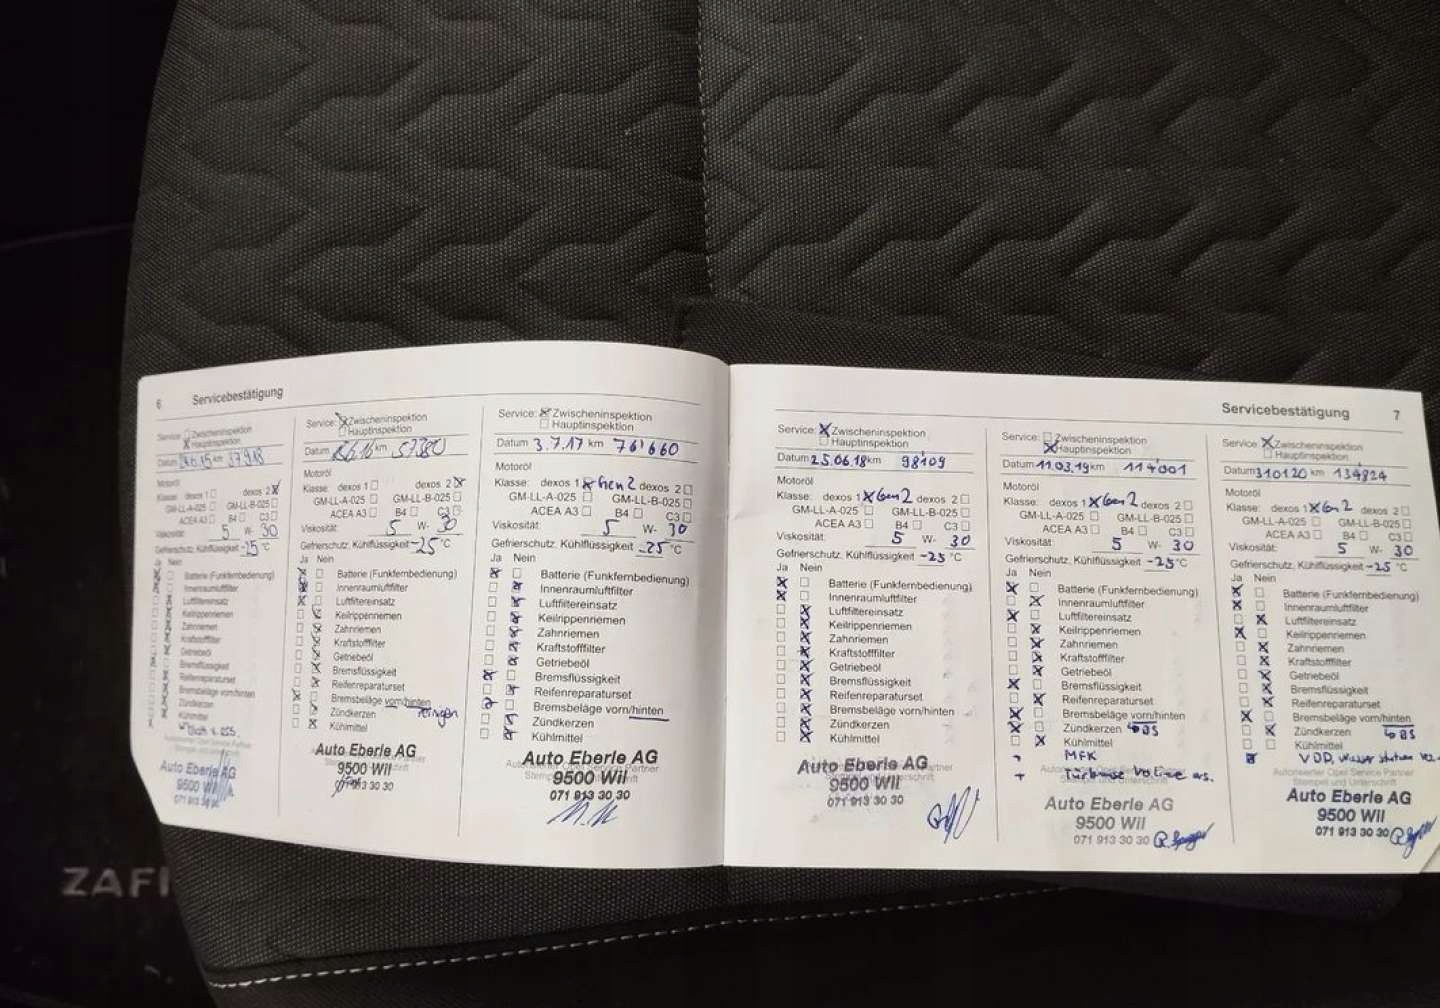 6 Servicebestätigung
Service: Zwischeninspektion
Hauptinspektion
Datum km 37913
Motoröl
Klasse: dexos 1 dexos 2
GM-LL-A-025 GM-LL-B-025
ACEA A3 B4 C3
Viskosität: 5 W- 30
Gefrierschutz, Kühlflüssigkeit -25 °C
Ja Nein
Batterie (Funkfernbedienung)
Innenraumluftfilter
Luftfiltereinsatz
Keilrippenriemen
Zahnriemen
Kraftstofffilter
Getriebeöl
Bremsflüssigkeit
Reifenreparaturset
Bremsbeläge vorn/hinten
Zündkerzen
Kühlmittel
Auto Eberle AG
9500 Wil
071 913
Service: Zwischeninspektion
Hauptinspektion
Datum km 57380
Motoröl
Klasse: dexos 1 dexos 2
GM-LL-A-025 GM-LL-B-025
ACEA A3 B4 C3
Viskosität: 5 W- 30
Gefrierschutz, Kühlflüssigkeit -25 °C
Ja Nein
Batterie (Funkfernbedienung)
Innenraumluftfilter
Luftfiltereinsatz
Keilrippenriemen
Zahnriemen
Kraftstofffilter
Getriebeöl
Bremsflüssigkeit
Reifenreparaturset
Bremsbeläge vorn/hinten
Zündkerzen
Kühlmittel
Auto Eberle AG
9500 Wil
913 30 30
Service: Zwischeninspektion
Hauptinspektion
Datum 3.7.17 km 76'660
Motoröl
Klasse: dexos 1 Gen 2 dexos 2
GM-LL-A-025 GM-LL-B-025
ACEA A3 B4 C3
Viskosität: 5 W- 30
Gefrierschutz, Kühlflüssigkeit -25 °C
Ja Nein
Batterie (Funkfernbedienung)
Innenraumluftfilter
Luftfiltereinsatz
Keilrippenriemen
Zahnriemen
Kraftstofffilter
Getriebeöl
Bremsflüssigkeit
Reifenreparaturset
Bremsbeläge vorn/hinten
Zündkerzen
Kühlmittel
Auto Eberle AG
9500 Wil
071 913 30 30
Servicebestätigung 7
Service: Zwischeninspektion
Hauptinspektion
Datum 25.06.18 km 98109
Motoröl
Klasse: dexos 1 Gen 2 dexos 2
GM-LL-A-025 GM-LL-B-025
ACEA A3 B4 C3
Viskosität: 5 W- 30
Gefrierschutz, Kühlflüssigkeit -25 °C
Ja Nein
Batterie (Funkfernbedienung)
Innenraumluftfilter
Luftfiltereinsatz
Keilrippenriemen
Zahnriemen
Kraftstofffilter
Getriebeöl
Bremsflüssigkeit
Reifenreparaturset
Bremsbeläge vorn/hinten
Zündkerzen
Kühlmittel
Auto Eberle AG
9500 Wil
071 913 30 30
Service: Zwischeninspektion
Hauptinspektion
Datum 11.03.19 km 114'001
Motoröl
Klasse: dexos 1 Gen 2 dexos 2
GM-LL-A-025 GM-LL-B-025
ACEA A3 B4 C3
Viskosität: 5 W- 30
Gefrierschutz, Kühlflüssigkeit -25 °C
Ja Nein
Batterie (Funkfernbedienung)
Innenraumluftfilter
Luftfiltereinsatz
Keilrippenriemen
Zahnriemen
Kraftstofffilter
Getriebeöl
Bremsflüssigkeit
Reifenreparaturset
Bremsbeläge vorn/hinten
Zündkerzen
Kühlmittel
MFK
Auto Eberle AG
9500 Wil
071 913 30 30
Service: Zwischeninspektion
Hauptinspektion
Datum 31.01.20 km 134'824
Motoröl
Klasse: dexos 1 Gen 2 dexos 2
GM-LL-A-025 GM-LL-B-025
ACEA A3 B4 C3
Viskosität: 5 W- 30
Gefrierschutz, Kühlflüssigkeit -25 °C
Ja Nein
Batterie (Funkfernbedienung)
Innenraumluftfilter
Luftfiltereinsatz
Keilrippenriemen
Zahnriemen
Kraftstofffilter
Getriebeöl
Bremsflüssigkeit
Reifenreparaturset
Bremsbeläge vorn/hinten
Zündkerzen
Kühlmittel
Autorisierter Opel Service Partner
Stempel und Unterschrift
Auto Eberle AG
9500 Wil
071 913 30 30
ZAFI